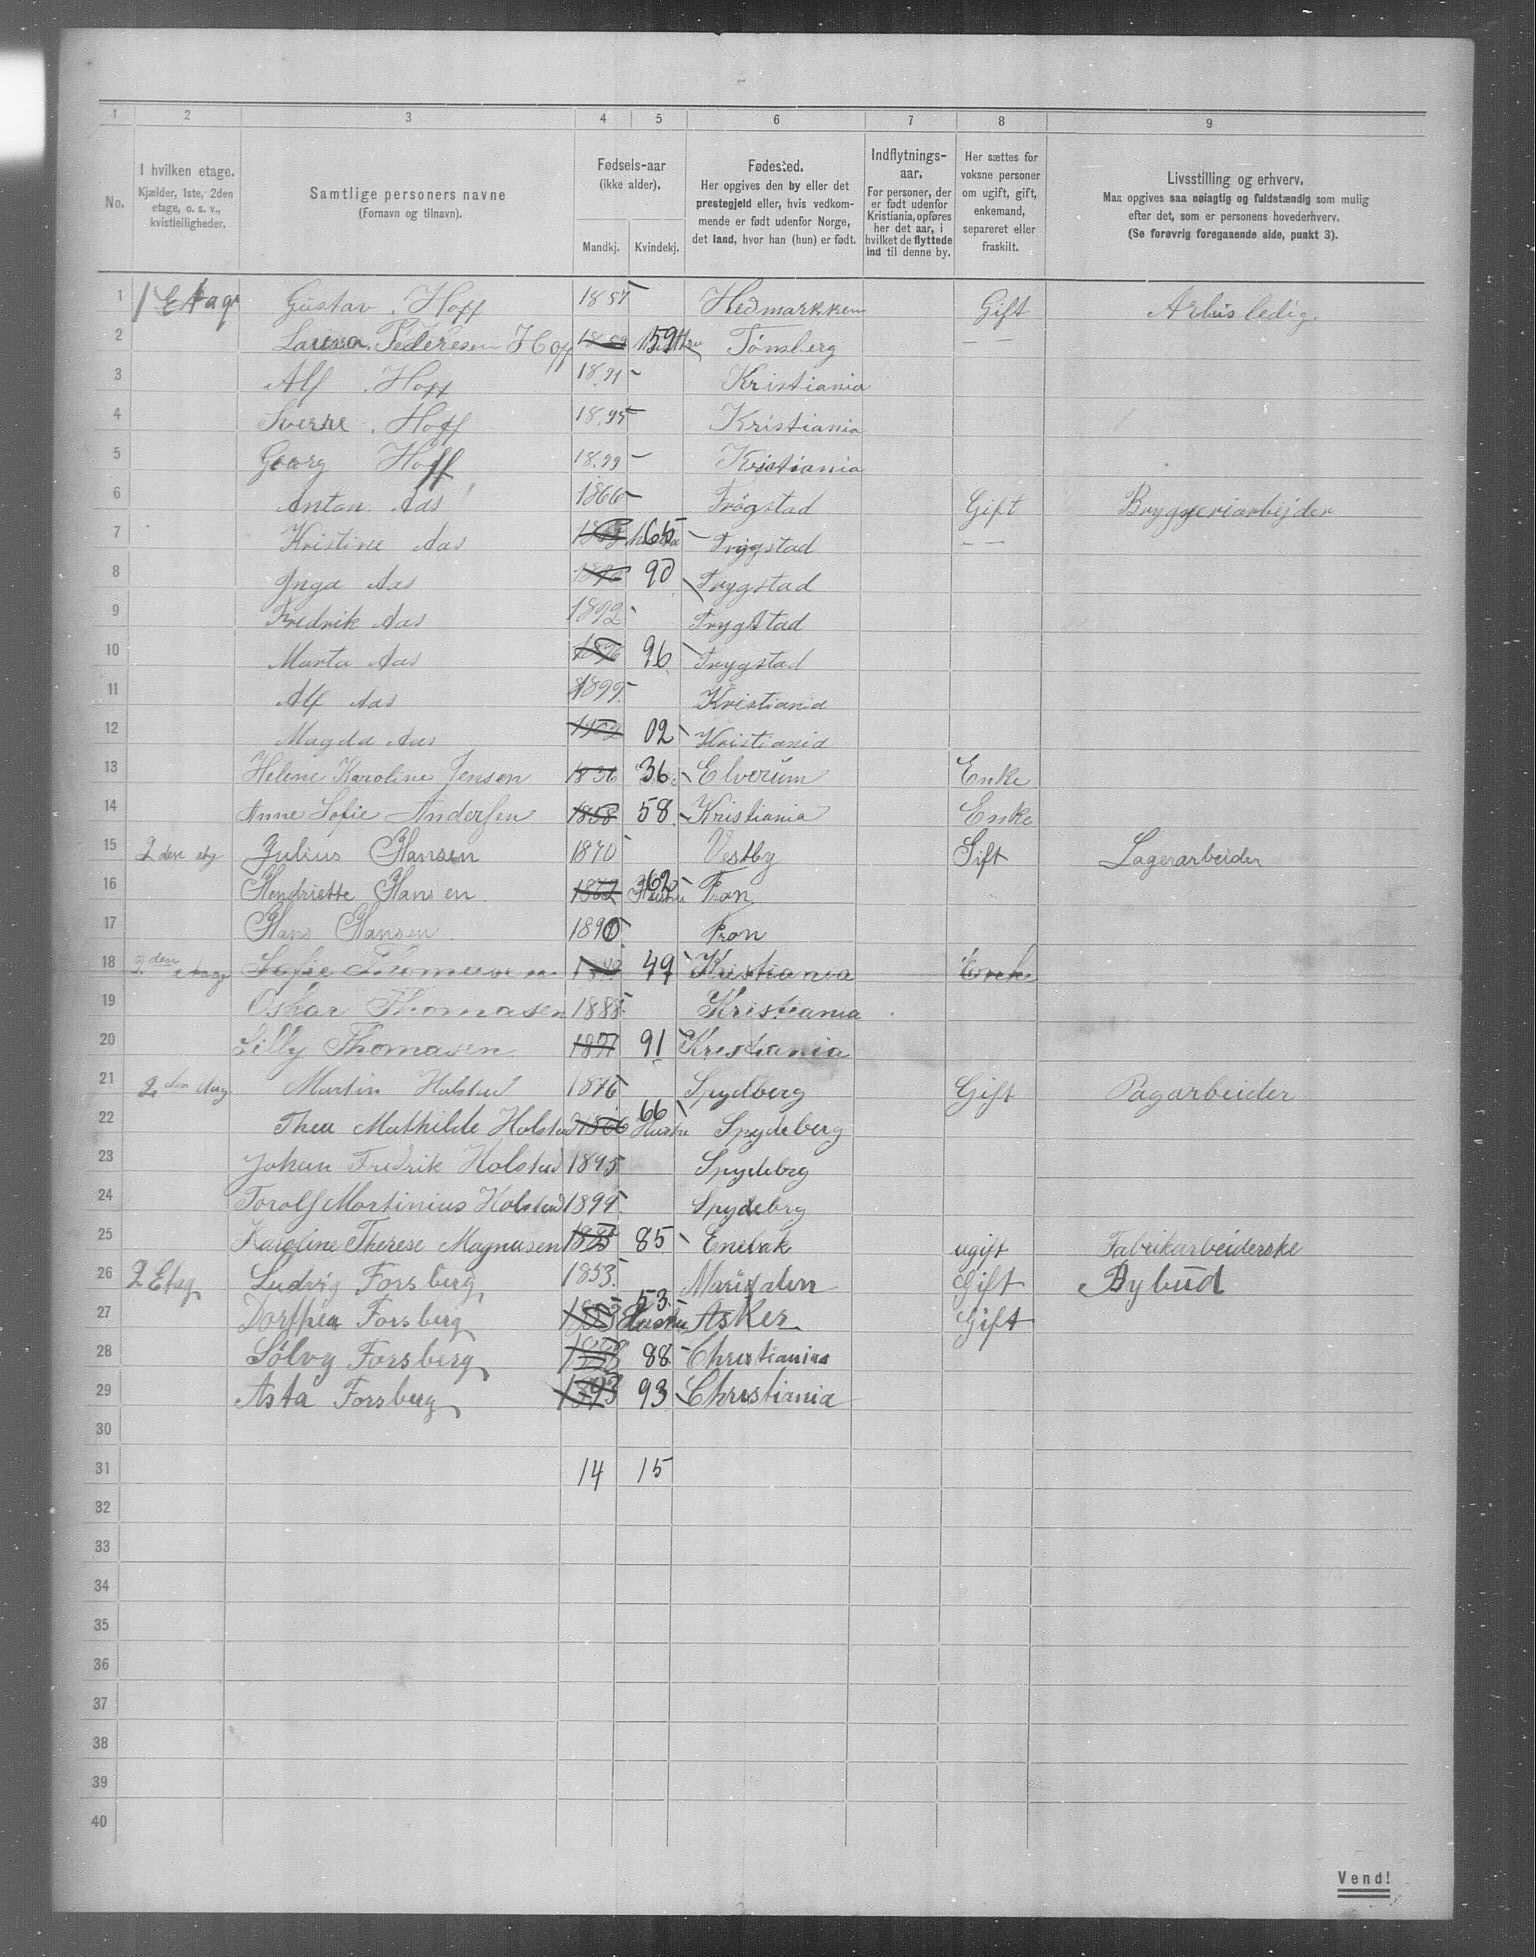 1 2 3 4 5 6 7 8 9
No.
I hvilken etage.
Kjælder, 1ste, 2den
etage, o. s. v.,
kvistleiligheder.
Samtlige personers navne
(Fornavn og tilnavn).
Fødsels-aar
(ikke alder).
Mandkj. Kvindekj.
Fødested.
Her opgives den by eller det
prestegjeld eller, hvis vedkom-
mende er født udenfor Norge,
det land, hvor han (hun) er født.
Indflytnings-
aar.
For personer, der
er født udenfor
Kristiania, opføres
her det aar, i
hvilket de flyttede
ind til denne by.
Her sættes for
voksne personer
om ugift, gift,
enkemand,
separeret eller
fraskilt.
Livsstilling og erhverv.
Maa opgives saa nøiagtig og fuldstændig som mulig
efter det, som er personens hovederhverv.
(Se forøvrig foregaaende side, punkt 3).
1 1 Etage Gustav Hoff 1857 Hedmarkken Gift Arbusledig
2 Larena Pederesen Hoff 59 Tønsberg — —
3 Alf Hoff 1891 Kristiania
4 Sverre Hoff 1895 Kristiania
5 Georg Hoff 1899 Kristiania
6 Anton Aas 1866 Frøgstad Gift Bryggeriarbijder
7 Kristine Aas 65 Trygstad — —
8 Inga Aas 1890 90 Trygstad
9 Fredrik Aas 1892 Trygstad
10 Marta Aas 1896 96 Trygstad
11 Alf Aas 1899 Kristiania
12 Magda Aas 1902 02 Kristiania
13 Helene Karoline Jensen 1836 36 Elverum Enke
14 Anne Sofie Andersen 1858 58 Kristiania Enke
15 2 den etg Julius Hansen 1870 Vestby Gift Lagerarbeider
16 Hendriette Hansen 1862 62 Hustru Fron
17 Hans Hansen 1890 Fron
18 2den etag Sofie Thomasen 1849 49 Kristiania Enke
19 Oskar Thomasen 1888 Kristiania
20 Lilly Thomasen 1891 91 Kristiania
21 2 den etag Martin Holstad 1876 Spydberg Gift Pagarbeider
22 Thea Mathilde Holstad 1866 66 Hustru Spydeberg
23 Johan Fredrik Holstad 1895 Spydebrg
24 Torolf Martinius Holstad 1899 Spydebrg
25 Karoline Therese Magnusen 1885 85 Enebak ugift Fabrikarbeiderske
26 2 Etag Ludvig Forsberg 1853 Maridalen Gift Bybud
27 Dorthea Forsberg 1853 53 Hustru Asker Gift
28 Sølvy Forsberg 1888 88 Christiania
29 Asta Forsberg 1893 93 Christiania
30
31 14 15
32
33
34
35
36
37
38
39
40
Vend!